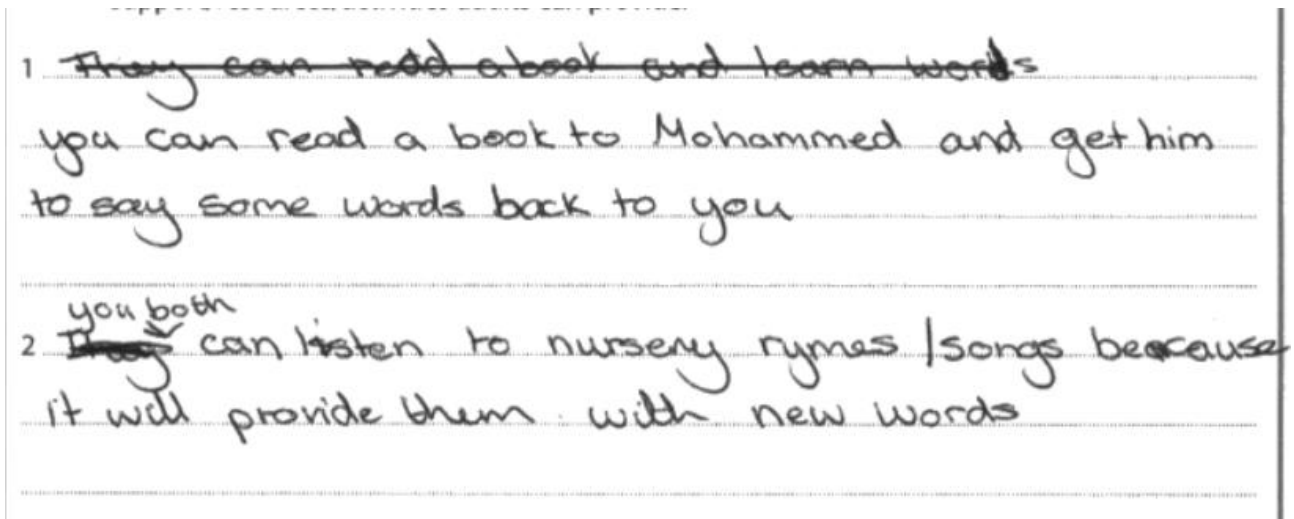 1 ~~They can read a book and learn words~~
you can read a book to Mohammed and get him
to say some words back to you
you both
2 ~~They~~ can listen to nursery rymes /songs because
it will provide them with new words